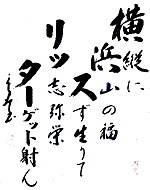 横縦に
浜山の福
スす生りて
リッ志弥栄
ターゲット射ん